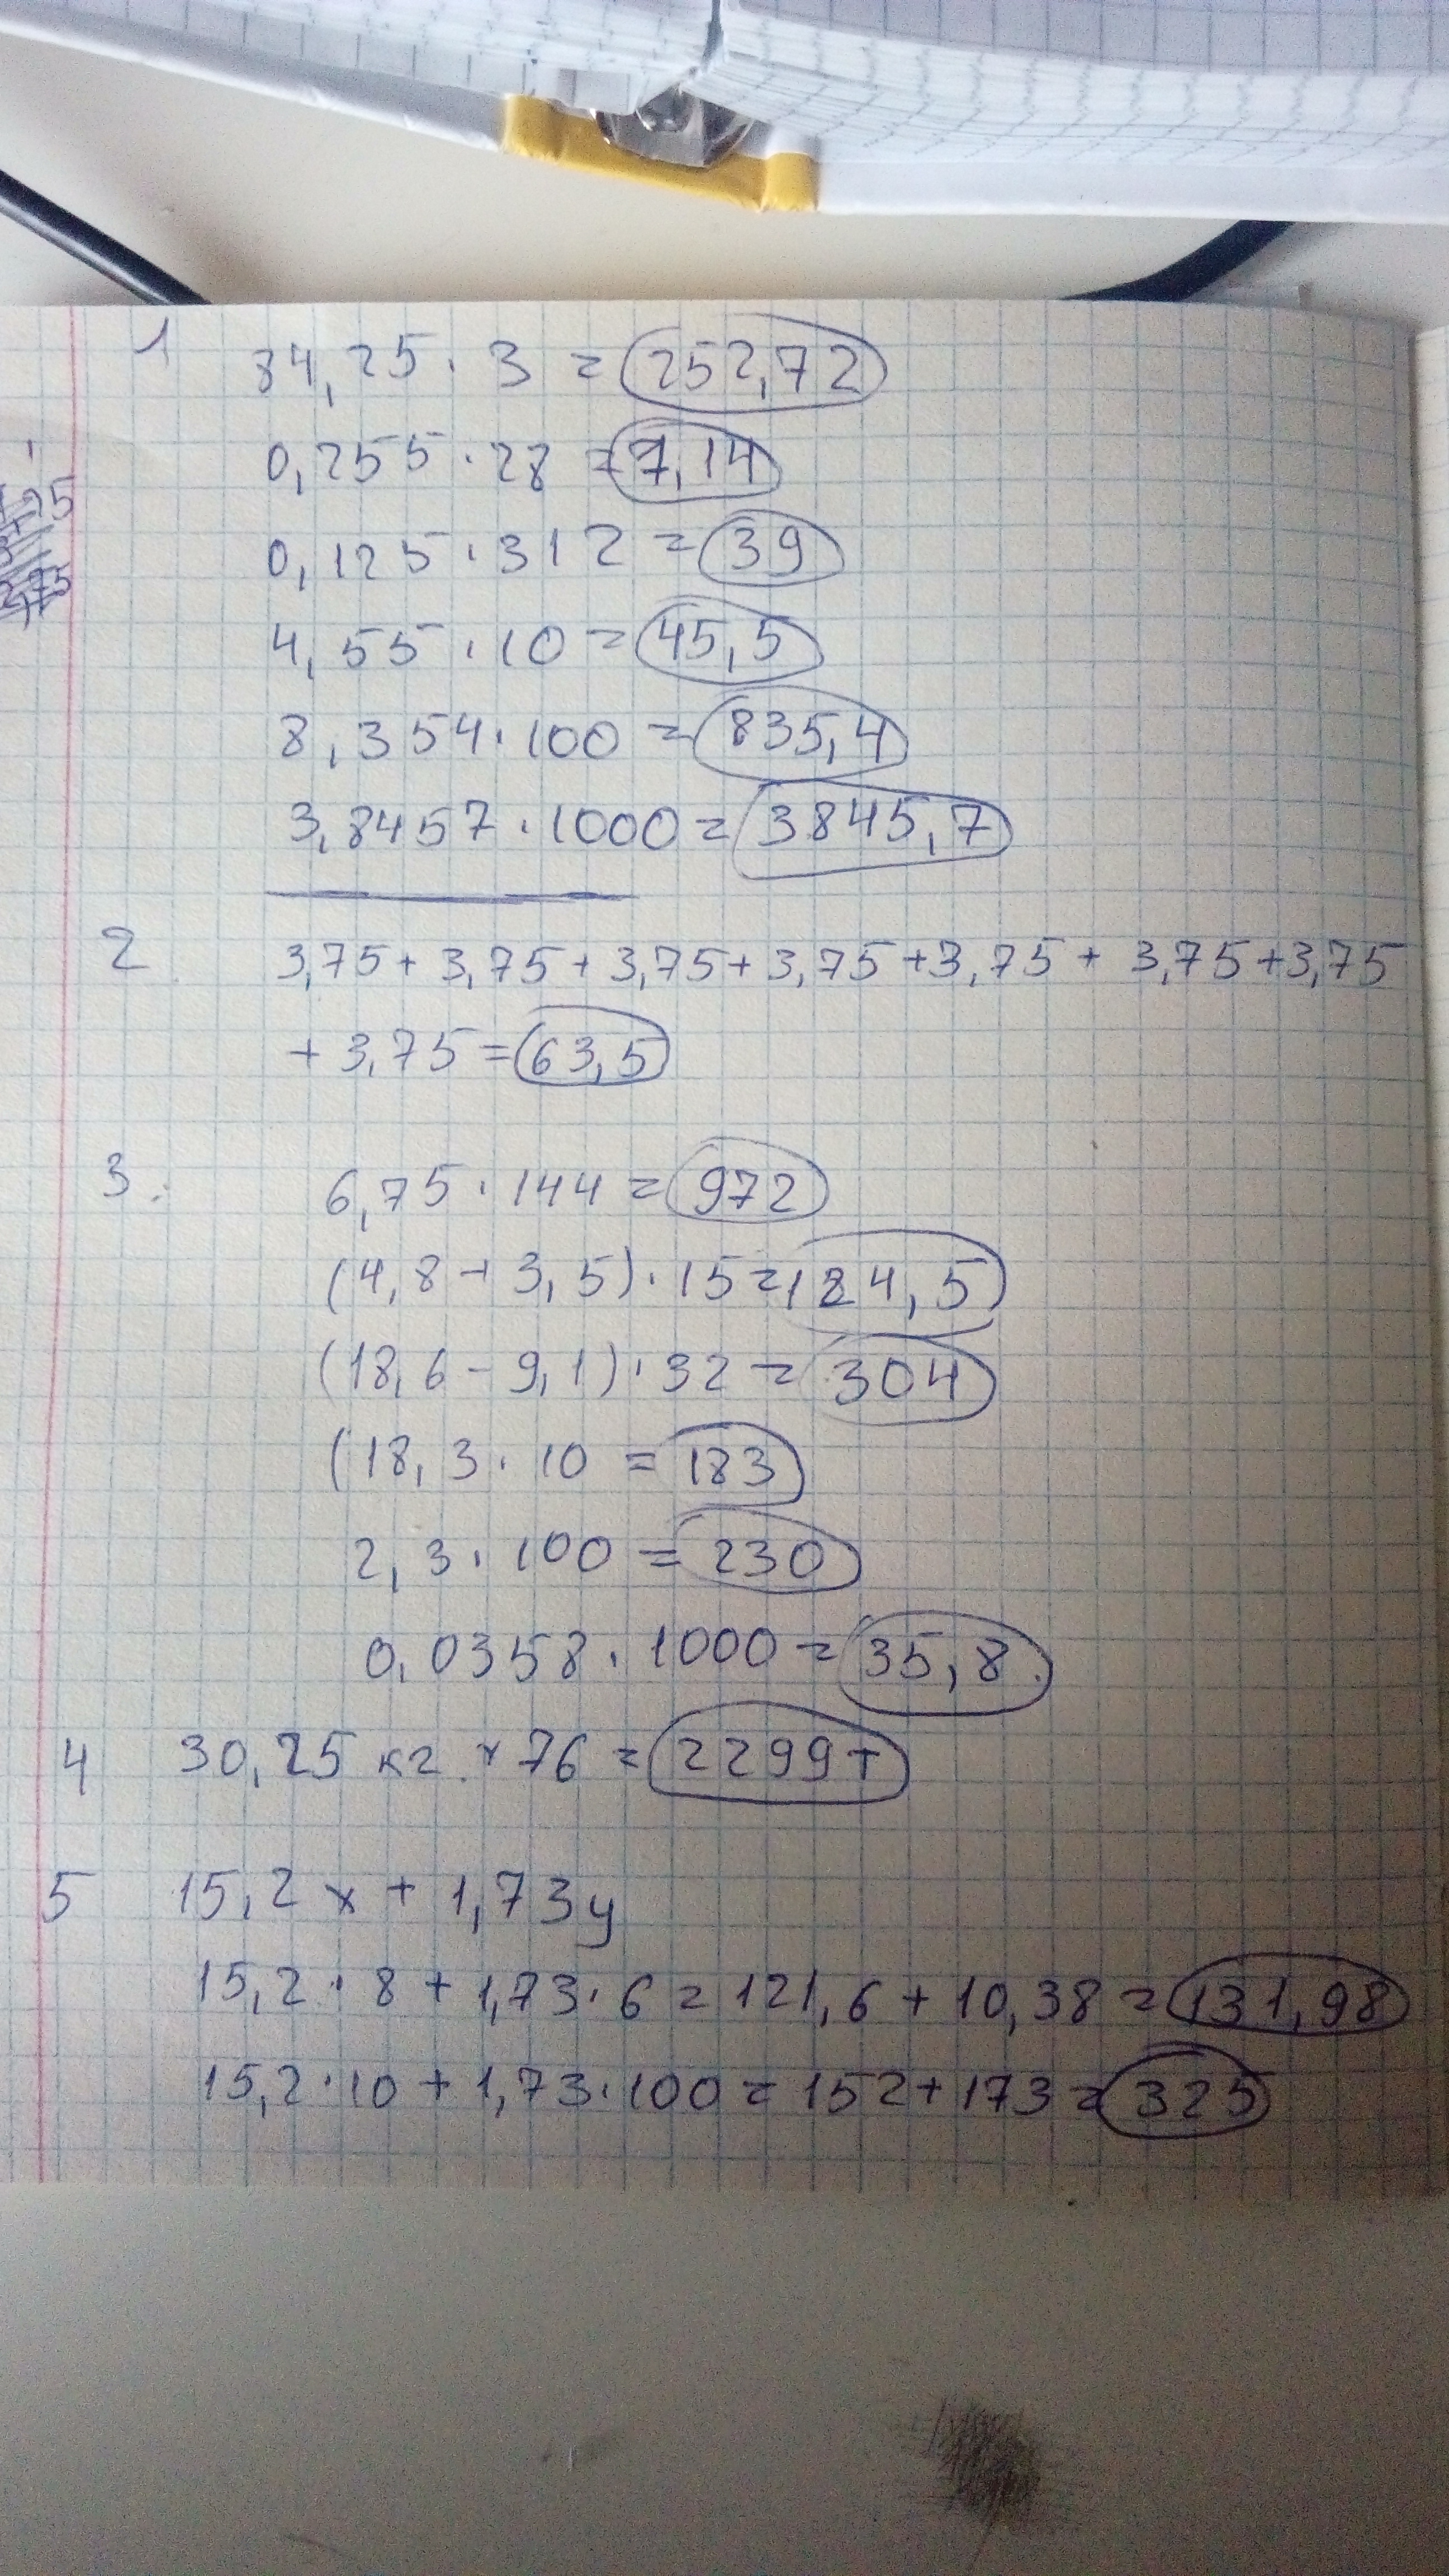 1 84,25 · 3 = 252,72
0,255 · 28 = 7,14
0,125 · 312 = 39
4,55 · 10 = 45,5
8,354 · 100 = 835,4
3,8457 · 1000 = 3845,7
2 3,75 + 3,75 + 3,75 + 3,75 + 3,75 + 3,75 + 3,75
+ 3,75 = 63,5
3. 6,75 · 144 = 972
(4,8 + 3,5) · 15 = 124,5
(18,6 - 9,1) · 32 = 304
(18,3 · 10 = 183
2,3 · 100 = 230
0,0358 · 1000 = 35,8
4 30,25 кг. × 76 = 2299т
5 15,2x + 1,73y
15,2 · 8 + 1,73 · 6 = 121,6 + 10,38 = 131,98
15,2 · 10 + 1,73 · 100 = 152 + 173 = 325